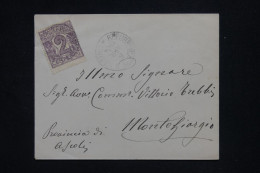 2
Illmo Signore
Sig. Avv. Comm. Vittorio
Montegiorgio
Provincia di
Ascoli